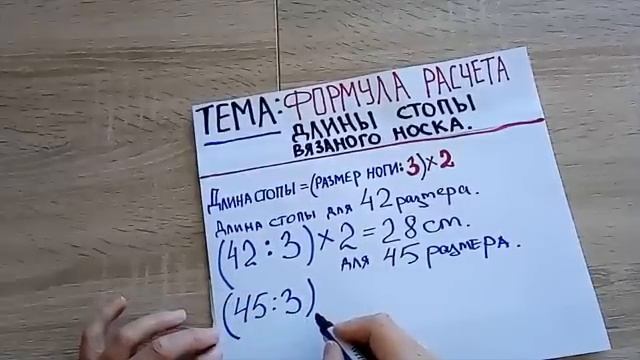 ТЕМА: ФОРМУЛА РАСЧЕТА
ДЛИНЫ СТОПЫ
ВЯЗАНОГО НОСКА.
ДЛИНА СТОПЫ = (РАЗМЕР НОГИ: 3) × 2
ДЛИНА СТОПЫ ДЛЯ 42 размера.
(42 : 3) × 2 = 28 cm.
для 45 размера.
(45 : 3)